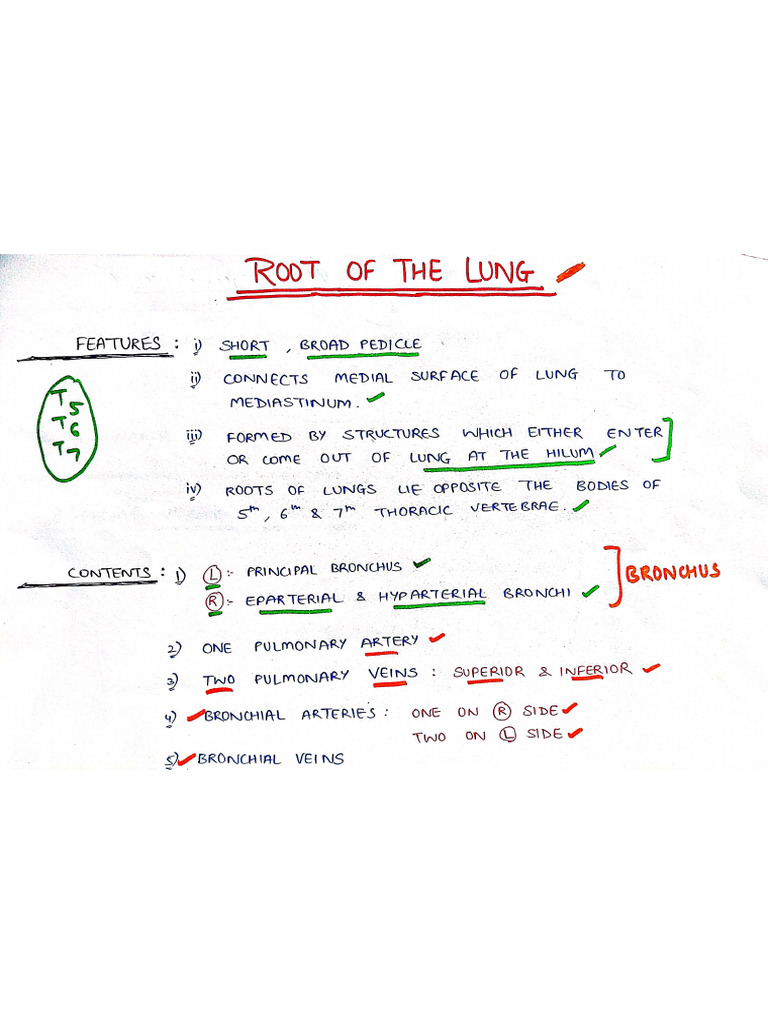 ROOT OF THE LUNG
FEATURES : i) SHORT , BROAD PEDICLE
ii) CONNECTS MEDIAL SURFACE OF LUNG TO
MEDIASTINUM.
iii) FORMED BY STRUCTURES WHICH EITHER ENTER
OR COME OUT OF LUNG AT THE HILUM
iv) ROOTS OF LUNGS LIE OPPOSITE THE BODIES OF
5th, 6th & 7th THORACIC VERTEBRAE.
T5
T6
T7
CONTENTS : 1) L :- PRINCIPAL BRONCHUS
R :- EPARTERIAL & HYPARTERIAL BRONCHI
BRONCHUS
2) ONE PULMONARY ARTERY
3) TWO PULMONARY VEINS : SUPERIOR & INFERIOR
4) BRONCHIAL ARTERIES : ONE ON R SIDE
TWO ON L SIDE
5) BRONCHIAL VEINS